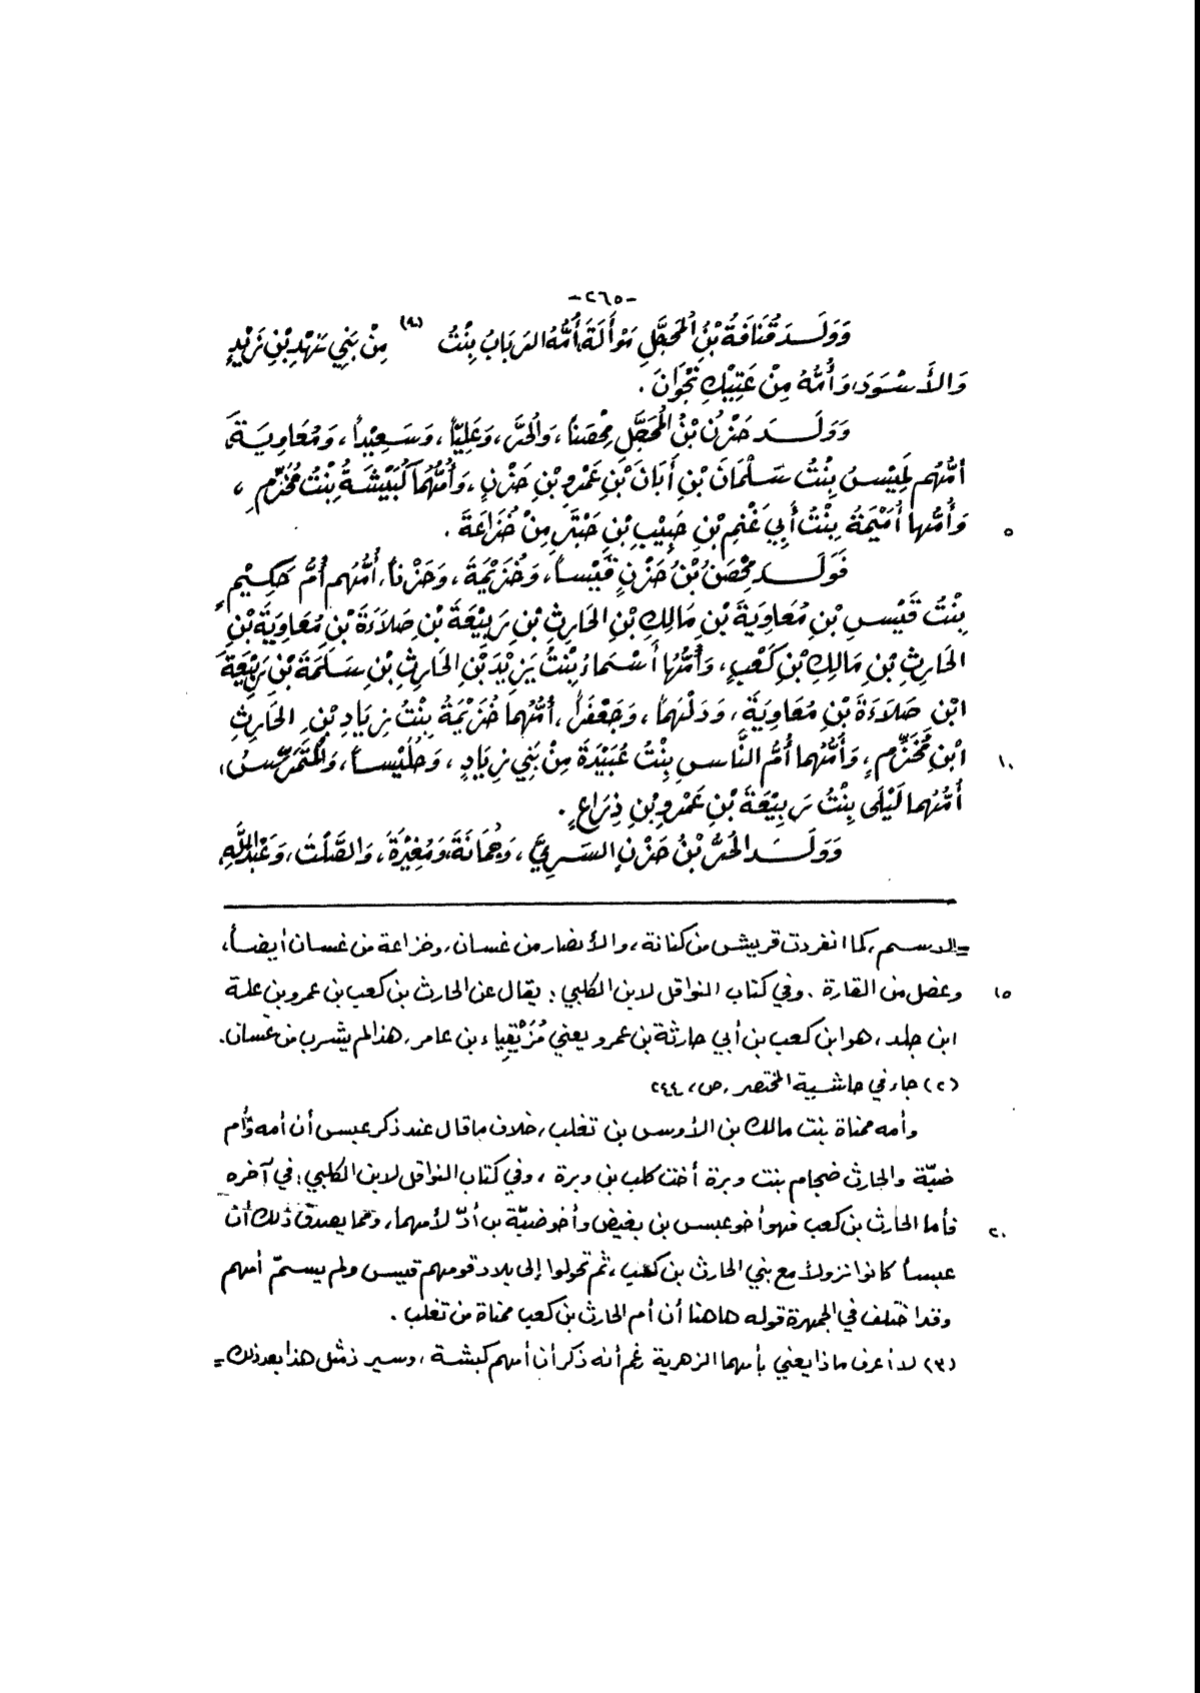 -٢٦٥-
وَوَلَـدَ قُنَافَةُ بْنُ المُحَجَّلِ مَوْأَلَةَ، أُمُّهُ الرَبَابُ بِنْتُ (٩) مِنْ بَنِي نَهْدِ بْنِ زَيْدٍ
وَالأَسْوَدَ، وَأُمُّهُ مِنْ عَتِيْكِ نَجْرَانَ .
وَوَلَـدَ حَزْنُ بْنُ المُحَجَّلِ مِحْصَناً، وَالحُرَّ، وَعَلِيّاً، وَسَعِيْداً، وَمُعَاوِيَةَ
أُمُّهُم لَمِيْسُ بِنْتُ سَلْمَانَ بْنِ أَبَانَ بْنِ عَمْرِو بْنِ حَزْنٍ، وَأُمُّهُمَا كُبَيْشَةُ بِنْتُ مُخَرِّمٍ ،
وَأُمُّها أُمَيْمَةُ بِنْتُ أَبِي غَنْمِ بْنِ حَبِيْبِ بْنِ حَبْتَرٍ مِنْ خُزَاعَةَ . ٥
فَوَلَـدَ مِحْصَنُ بْنُ حَزْنٍ قَيْساً، وَخُزَيْمَةَ، وَحَزْناً، أُمُّهُم أُمُّ حَكِيْمٍ
بِنْتُ قَيْسِ بْنِ مُعَاوِيَةَ بْنِ مَالِكِ بْنِ الحَارِثِ بْنِ رَبِيْعَةَ بْنِ صَلاَءَةَ بْنِ مُعَاوِيَةَ بْنِ
الحَارِثِ بْنِ مَالِكِ بْنِ كَعْبٍ، وَأُمُّهَا أَسْمَاءُ بِنْتُ يَزِيْدَ بْنِ الحَارِثِ بْنِ سَلَمَةَ بْنِ رَبِيْعَةَ
ابْنِ صَلاَءَةَ بْنِ مُعَاوِيَةَ، وَدَلْهَمَاً، وَجَعْفَراً، أُمُّهُما خُزَيْمَةُ بِنْتُ زِيَادِ بْنِ الحَارِثِ
ابْنِ مُخَرِّمٍ، وَأُمُّهُما أُمُّ النَّاسِ بِنْتُ عُبَيْدَةَ مِنْ بَنِي زِيَادٍ ، وَحُلَيْساً، وَالمُتَمَرِّسَ، ١٠
أُمُّهُما لَيْلَى بِنْتُ رَبِيْعَةَ بْنِ عَمْرِو بْنِ ذِرَاعٍ .
وَوَلَـدَ الحُرُّ بْنُ حَزْنٍ السَرِيَّ، وَجُمَانَةَ، وَمُغِيْرَةَ، وَالصَّلْتَ، وَعَبْدَ اللَّهِ
= الدسم، كما انفردت قريش من كنانة، والأنصار من غسان، وخزاعة من غسان أيضاً،
وعضل من القارة . وفي كتاب النواقل لابن الكلبي : يقال عن الحارث بن كعب بن عمرو بن علة ١٥
ابن جلد، هو ابن كعب بن أبي حارثة بن عمرو يعني مُزَيْقِياء بن عامر، هذا لم يشرب من غسان.
(٢) جاء في حاشية المختصر، ص، ٢٤٤
وأمه مماة بنت مالك بن الأوس بن تغلب، خلاف ما قال عند ذكر عبس أن أمه وأم
ضبّة والحارث ضجام بنت وبرة أخت كلب بن وبرة ، وفي كتاب النواقل لابن الكلبي : في آخره
فأما الحارث بن كعب فهو أخو عبس بن بغيض وأخو ضبّة بن أدّ لأمهما، ومما يصدق ذلك أن ٢٠
عبساً كانوا نزولاً مع بني الحارث بن كعب ، ثم تحولوا إلى بلاد قومهم قيس ولم يسمّ أمهم
وقد اختلف في الجمهرة قوله هاهنا أن أم الحارث بن كعب مماة من تغلب .
(٣) لا أعرف ماذا يعني بأمهما الزهرية رغم أنه ذكر أن أمهم كبشة ، وسيرد مثل هذا بعد ذلك =